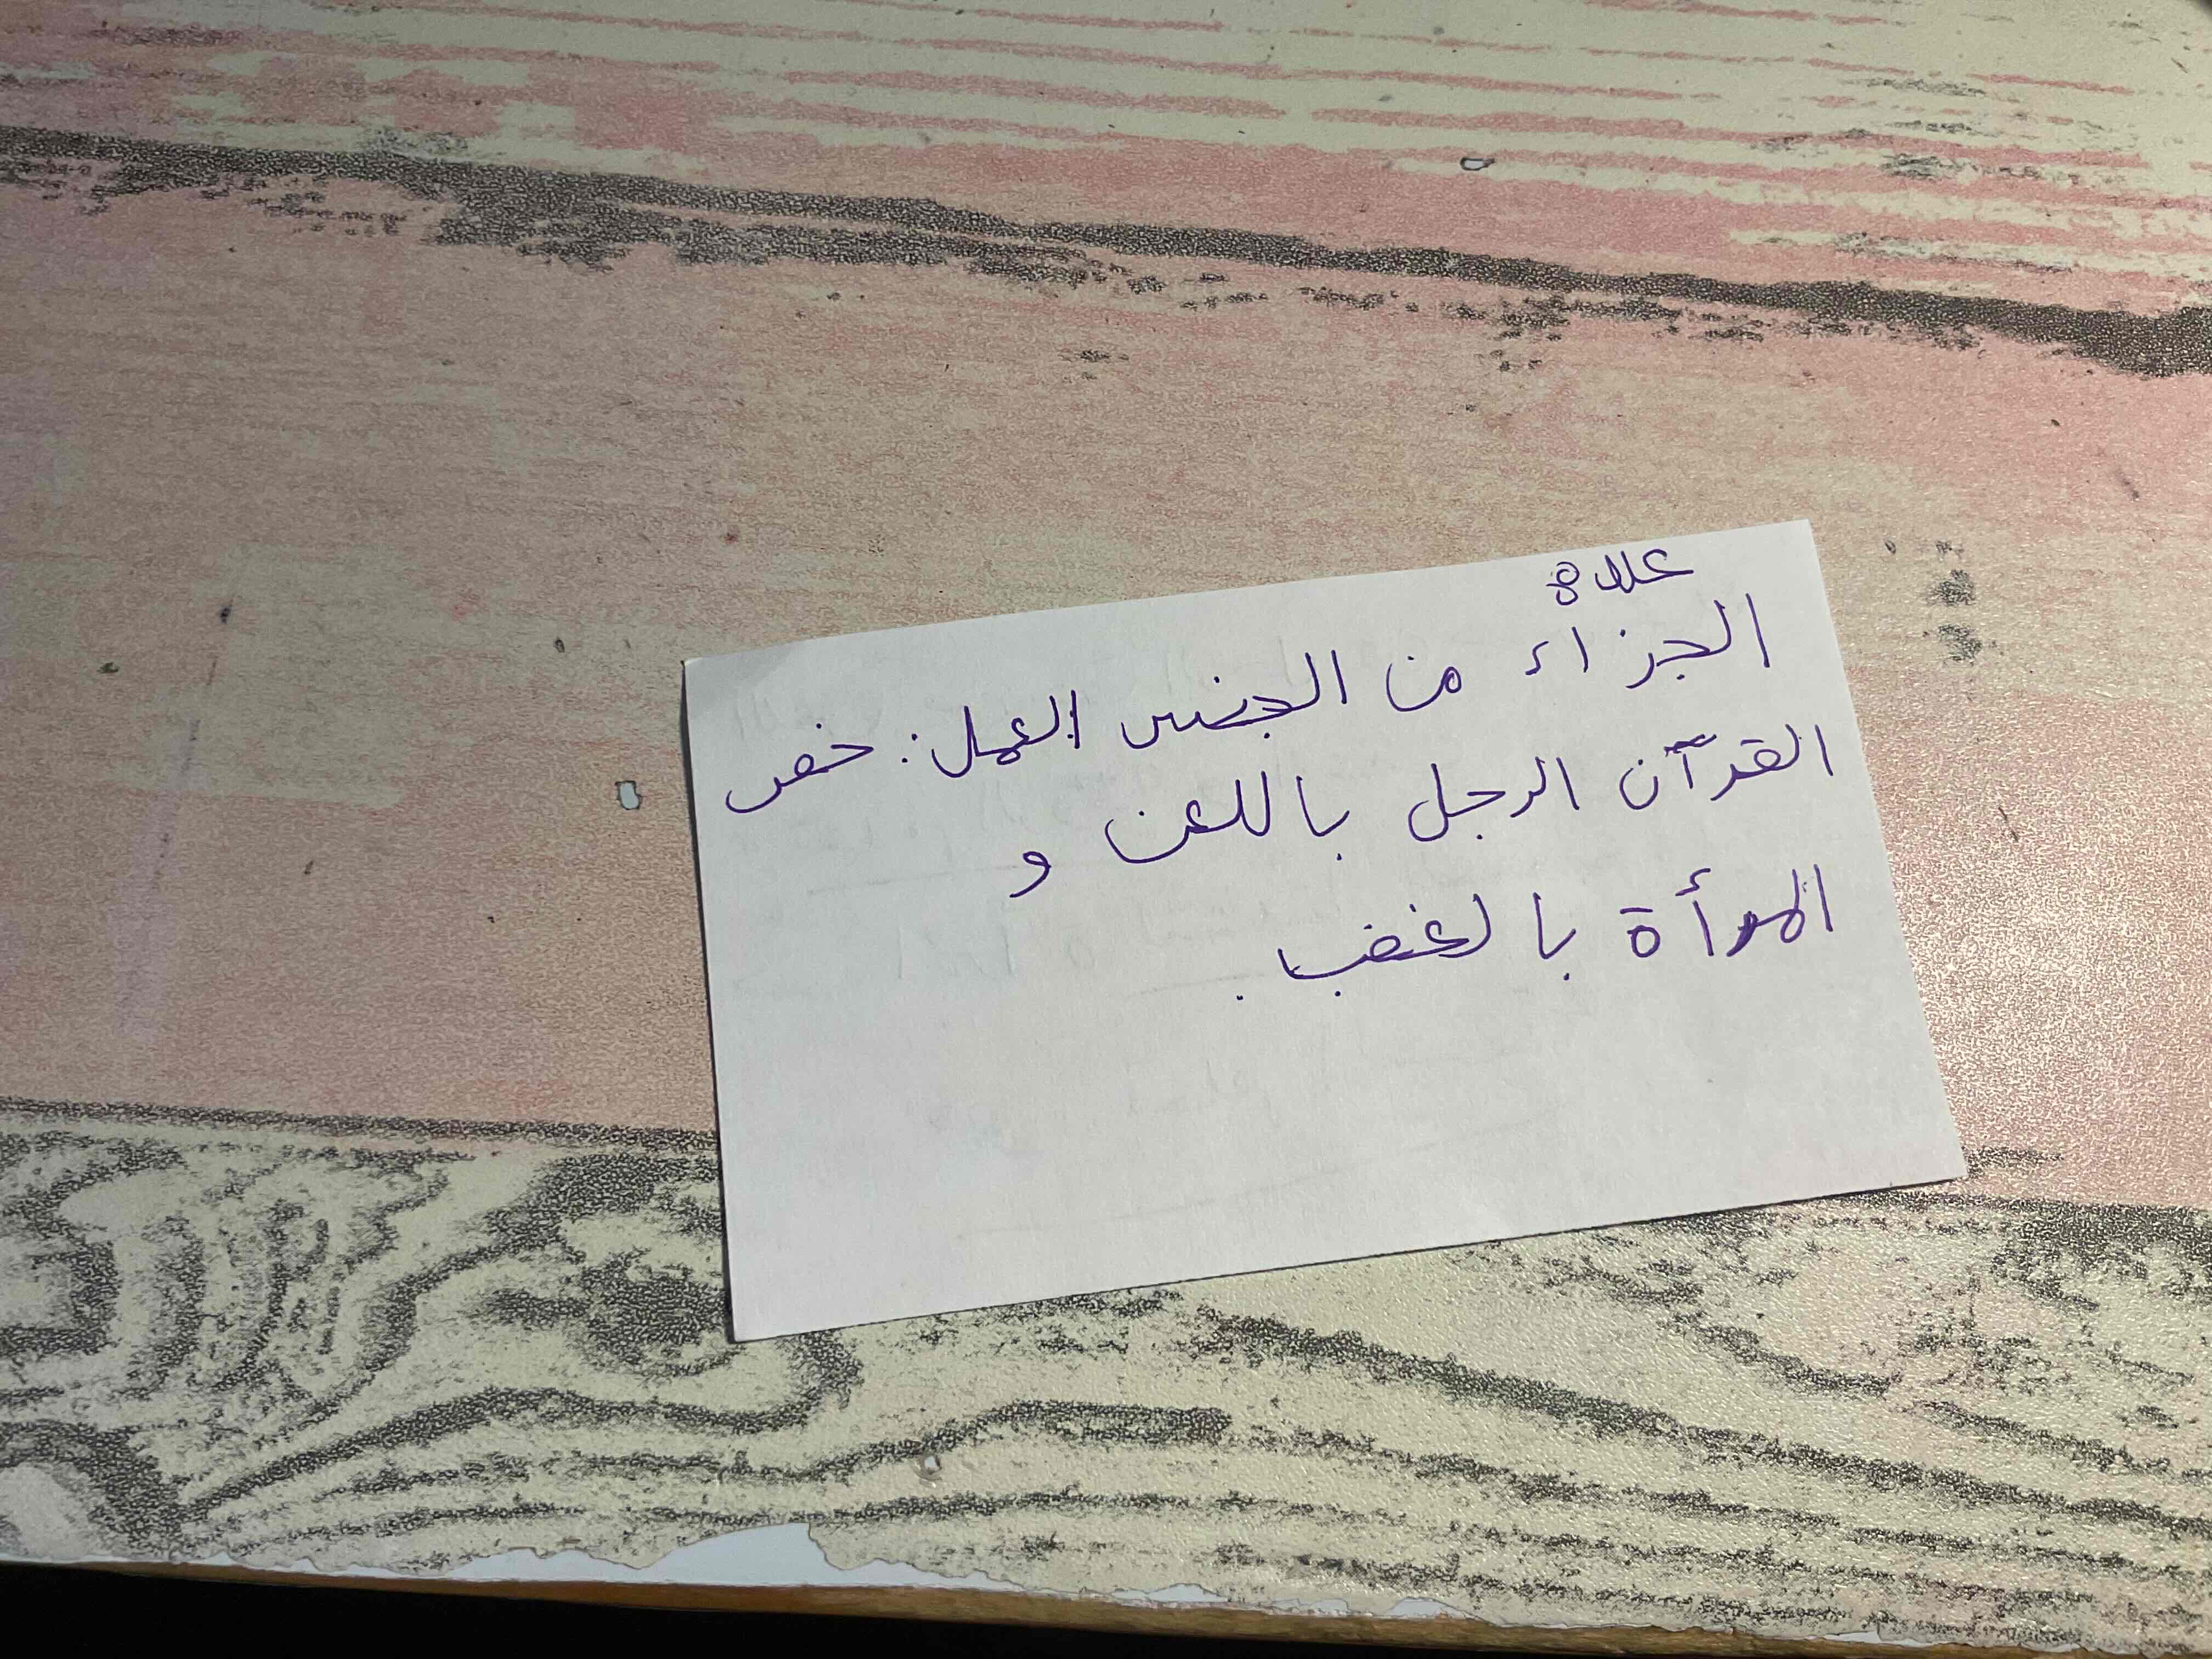 علاة
الجزاء من الجنس العمل: خص
القرآن الرجل باللعن و
المرأة بالغضب.